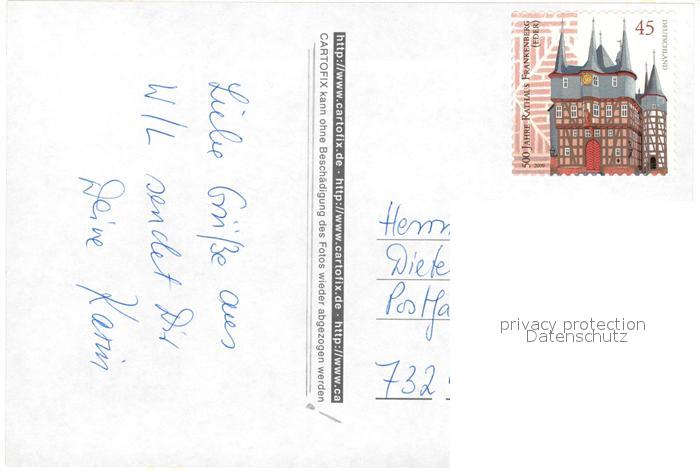 Liebe Grüße aus
W/L sendet Dir
Deine Karin
http://www.cartofix.de · http://www.cartofix.de · http://www.ca
CARTOFIX kann ohne Beschädigung des Fotos wieder abgezogen werden
!
500 JAHRE RATHAUS FRANKENBERG
(EDER)
2009
45
DEUTSCHLAND
Herrn
Diete
Postfa
732
privacy protection
Datenschutz